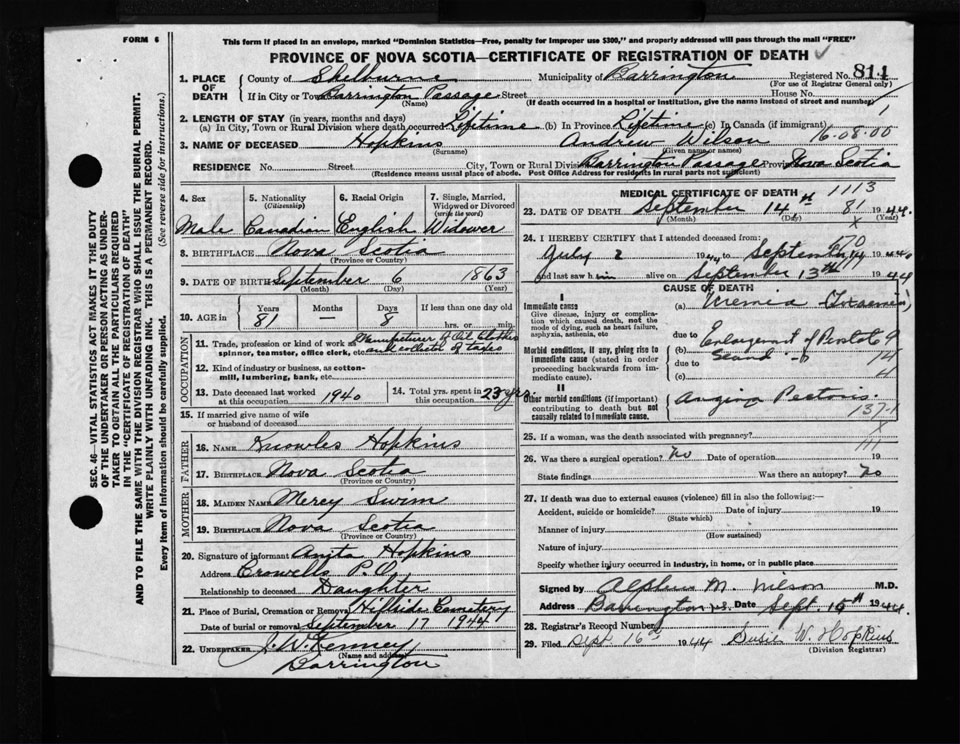 FORM 6
This form if placed in an envelope, marked "Dominion Statistics—Free, penalty for improper use $300," and properly addressed will pass through the mail "FREE"
PROVINCE OF NOVA SCOTIA—CERTIFICATE OF REGISTRATION OF DEATH
SEC. 46—VITAL STATISTICS ACT MAKES IT THE DUTY
OF THE UNDERTAKER OR PERSON ACTING AS UNDER-
TAKER TO OBTAIN ALL THE PARTICULARS REQUIRED
IN THE "CERTIFICATE OF REGISTRATION OF DEATH"
AND TO FILE THE SAME WITH THE DIVISION REGISTRAR WHO SHALL ISSUE THE BURIAL PERMIT.
WRITE PLAINLY WITH UNFADING INK. THIS IS A PERMANENT RECORD.
Every item of Information should be carefully supplied. (See reverse side for instructions.)
1. PLACE OF DEATH County of Shelburne Municipality of Barrington Registered No. 811
(For use of Registrar General only)
If in City or Town Barrington Passage Street House No.
(Name) (If death occurred in a hospital or institution, give the name instead of street and number)
2. LENGTH OF STAY (in years, months and days)
(a) In City, Town or Rural Division where death occurred Lifetime (b) In Province Lifetime (c) In Canada (if immigrant)
16-08-00
3. NAME OF DECEASED Hopkins Andrew Wilson
(Surname) (Given name or names)
RESIDENCE No. Street City, Town or Rural Div Barrington Passage Province Nova Scotia
(Residence means usual place of abode. Post Office Address for residents in rural parts not sufficient)
4. Sex 5. Nationality (Citizenship) 6. Racial Origin 7. Single, Married, Widowed or Divorced (write the word)
Male Canadian English Widower
8. BIRTHPLACE Nova Scotia
(Province or Country)
9. DATE OF BIRTH September 6 1863
(Month) (Day) (Year)
10. AGE in Years Months Days If less than one day old
81 — 8 hrs. or min.
OCCUPATION
11. Trade, profession or kind of work as spinner, teamster, office clerk, etc. Manufacturer of Oil Clothes and collector of taxes
12. Kind of industry or business, as cotton-mill, lumbering, bank, etc.
13. Date deceased last worked at this occupation 1940
14. Total yrs. spent in this occupation 23 yrs.
15. If married give name of wife or husband of deceased
FATHER
16. NAME Knowles Hopkins
17. BIRTHPLACE Nova Scotia
(Province or Country)
MOTHER
18. MAIDEN NAME Mercy Swim
19. BIRTHPLACE Nova Scotia
(Province or Country)
20. Signature of informant Anita Hopkins
Address Crowells P.O.
Relationship to deceased Daughter
21. Place of Burial, Cremation or Removal Hillside Cemetery
Date of burial or removal September 17 1944
22. UNDERTAKER J. W. Kenney
(Name and address)
Barrington
MEDICAL CERTIFICATE OF DEATH 1113
23. DATE OF DEATH September 14th 1944.
(Month) (Day) (Year)
81
X
24. I HEREBY CERTIFY that I attended deceased from
July 2 1944 to September 14 1944
and last saw him alive on September 13th 1944
CAUSE OF DEATH
I
Immediate cause (a) Uremia
Give disease, injury or complication which caused death, not the mode of dying, such as heart failure, asphyxia, asthenia, etc
due to
Morbid conditions, if any, giving rise to immediate cause (stated in order proceeding backwards from immediate cause). (b) Enlargement of
due to
(c)
II
Other morbid conditions (if important) contributing to death but not causally related to immediate cause. Angina Pectoris.
137-1
25. If a woman, was the death associated with pregnancy? X
111
26. Was there a surgical operation? No Date of operation 19
State findings Was there an autopsy? No
27. If death was due to external causes (violence) fill in also the following:—
Accident, suicide or homicide? Date of injury 19
(State which)
Manner of injury
(How sustained)
Nature of injury
Specify whether injury occurred in industry, in home, or in public place
Signed by Alpheus M. Wilson M.D.
Address Barrington N.S. Date Sept. 15th 1944.
28. Registrar's Record Number
29. Filed Sept 16th 1944 Susie W. Hopkins
(Division Registrar)